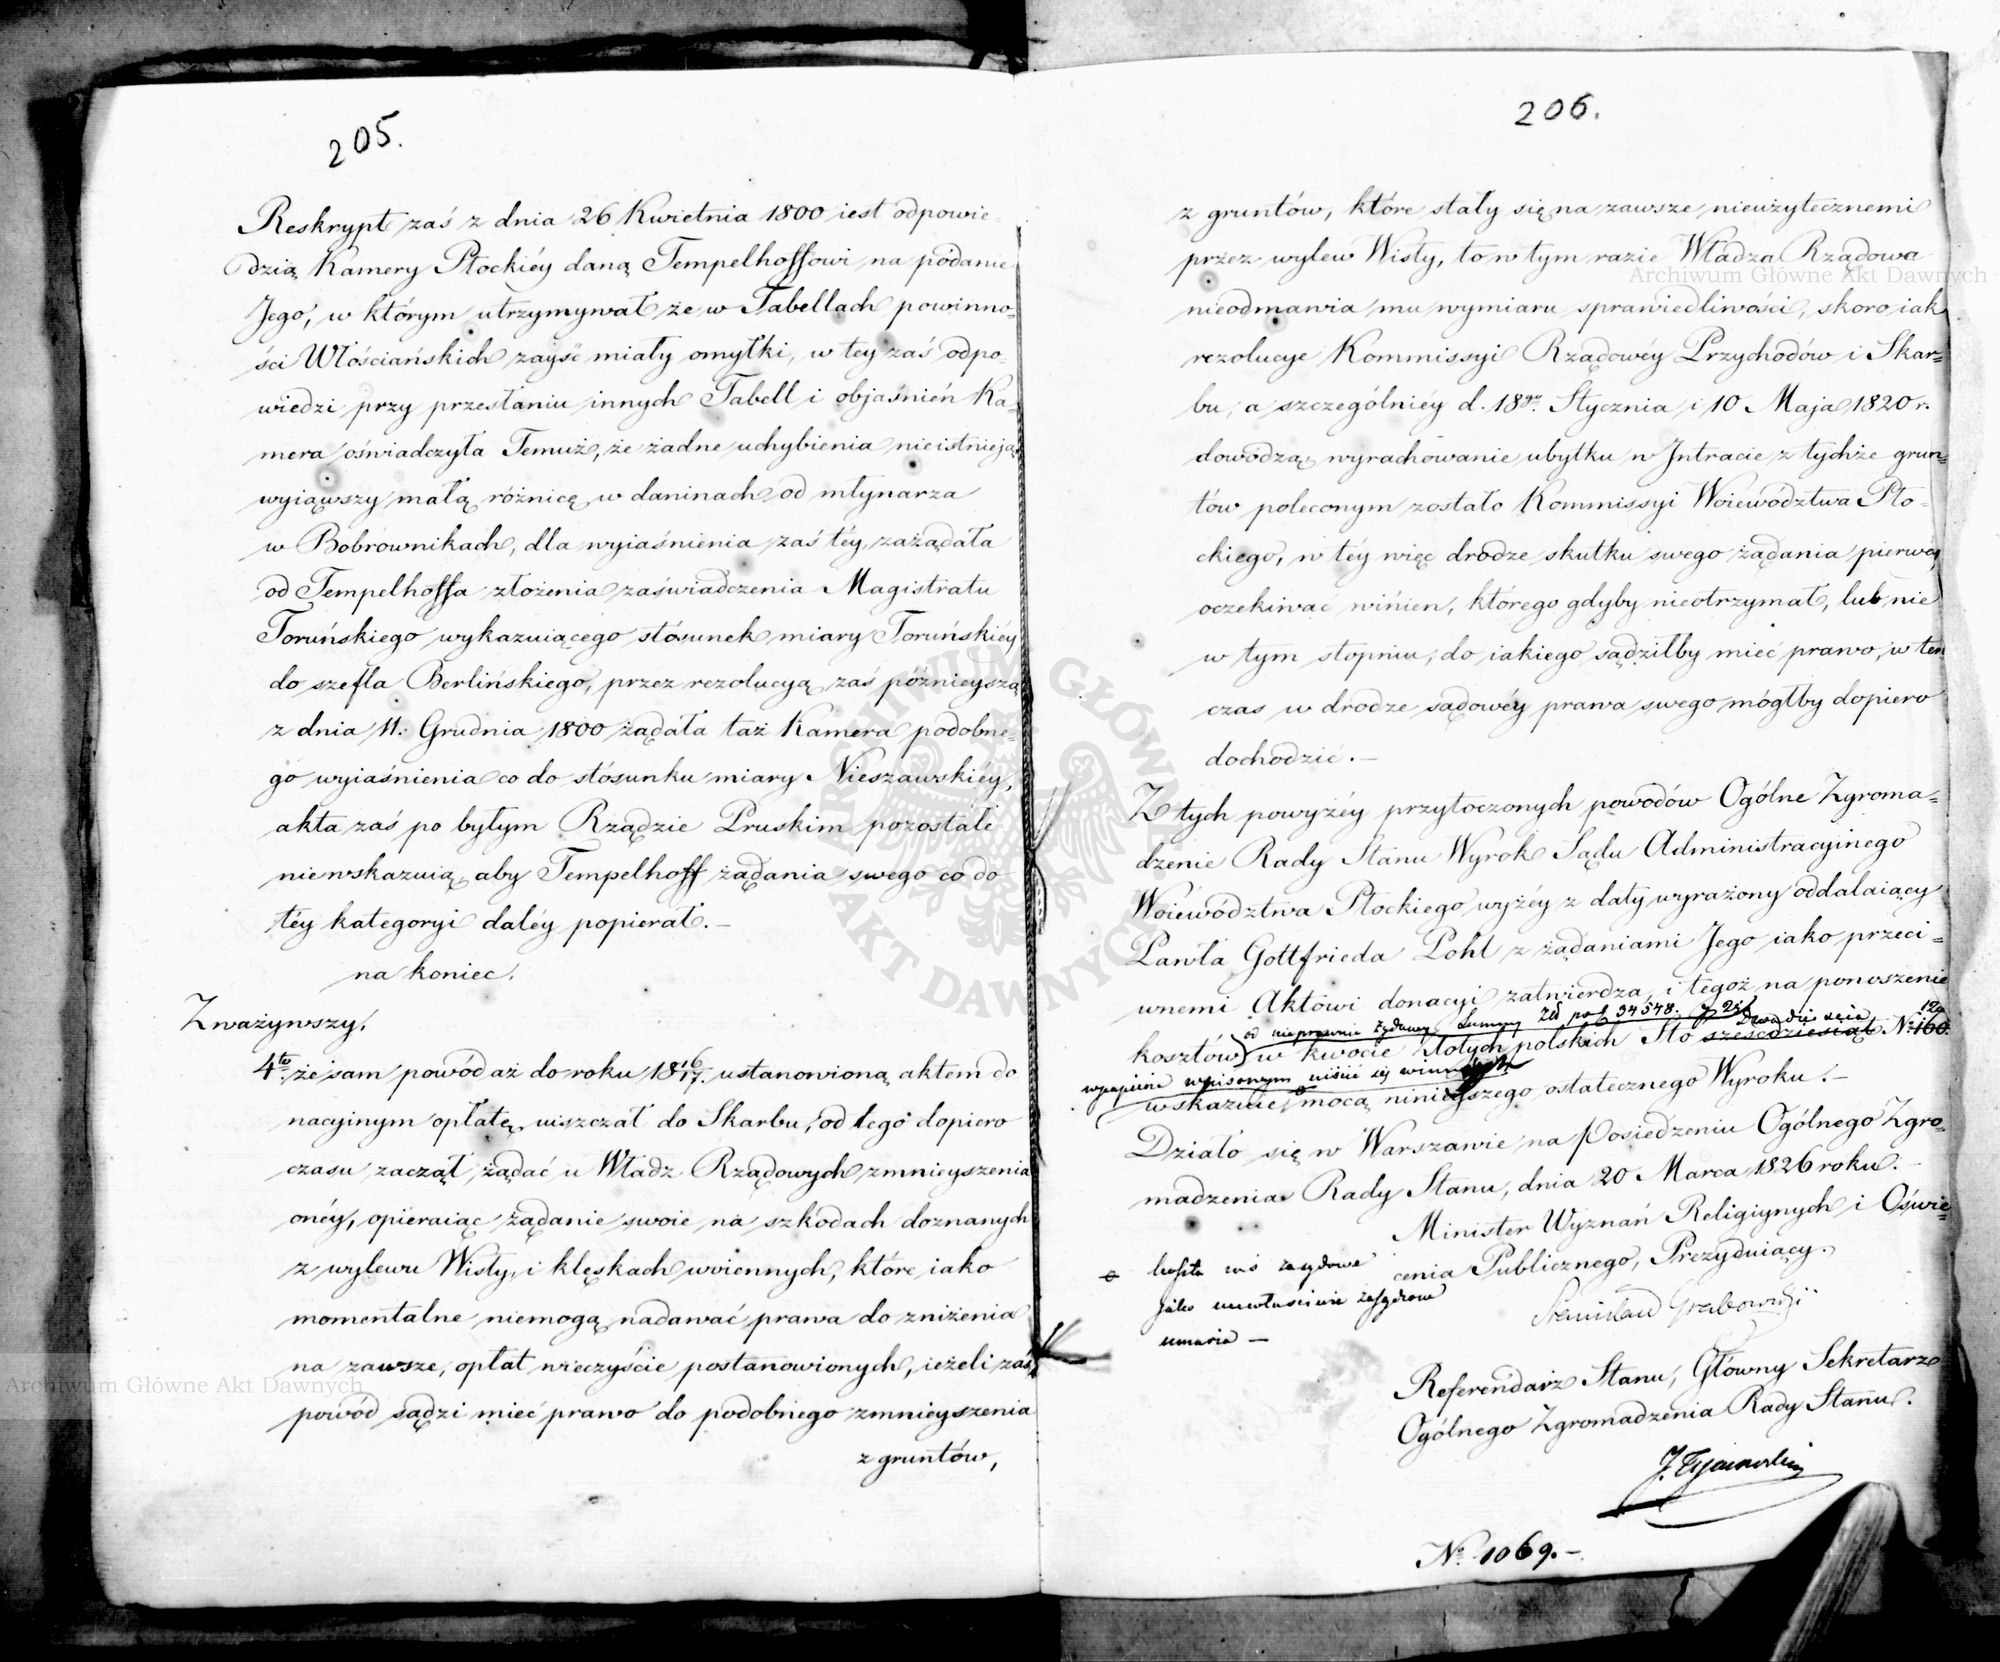 205.
Reskrypt zaś z dnia 26 Kwietnia 1800 iest odpowie=
dzią Kamery Płockiéy daną Tempelhoffowi na podanie
Jego, w którym utrzymywał że w Tabellach powinno=
ści Włościańskich zayść miały omyłki, w tey zaś odpo=
wiedzi przy przesłaniu innych Tabell i objaśnień Ka=
mera oświadczyła Temuż, że żadne uchybienia nieistnieją
wyiąwszy małą różnicę w daninach od młynarza
w Bobrownikach, dla wyiaśnienia zaś téy zażądała
od Tempelhoffa złożenia zaświadczenia Magistratu
Toruńskiego wykazuiącego stósunek miary Toruńskiéy
do szefla Berlińskiego, przez rezolucyą zaś późnieyszą
z dnia 11. Grudnia 1800 żądała taż Kamera podobne=
go wyiaśnienia co do stósunku miary Nieszawskiéy,
akta zaś po byłym Rządzie Pruskim pozostałe
niewskazuią aby Tempelhoff żądania swego co do
téy kategoryi daléy popierał.—
na koniec.
Zważywszy.
4to że sam powód aż do roku 1816/17. ustanowioną aktem do
nacyinym opłatę uiszczał do Skarbu, od tego dopiero
czasu zaczął żądać u Władz Rządowych zmnieyszenia
onéy, opieraiąc żądanie swoie na szkodach doznanych
z wylewu Wisły, i klęskach woiennych, które iako
momentalne niemogą nadawać prawa do zniżenia
na zawsze, opłat wieczyście postanowionych, ieżeli zaś
powód sądzi mieć prawo do podobnego zmnieyszenia
z gruntów,
206.
z gruntów, które stały się na zawsze nieużytecznemi
przez wylew Wisły, to w tym razie Władza Rządowa
nieodmawia mu wymiaru sprawiedliwości, skoro iak
rezolucye Kommissyi Rządowéy Przychodów i Skar=
bu, a szczególniéy d. 18go. Stycznia i 10 Maja 1820 r.
dowodzą, wyrachowanie ubytku w Intracie z tychże grun=
tów poleconym zostało Kommissyi Woiewództwa Pło=
ckiego, w téy więc drodze skutku swego żądania pierwéy
oczekiwać winien, którego gdyby nieotrzymał, lub nie
w tym stopniu, do iakiego sądziłby mieć prawo, w ten
czas w drodze sądowéy prawa swego mógłby dopiero
dochodzić.—
Z tych powyżéy przytoczonych powodów Ogólne Zgroma=
dzenie Rady Stanu Wyrok Sądu Administracyinego
Woiewództwa Płockiego wyżéy z daty wyrażony oddalaiący
Pawła Gottfrieda Pohl z żądaniami Jego iako przeci=
wnemi Aktowi donacyi zatwierdza, i tegoż na ponoszenie
od nieprawnie żądaney Summy Złł pol 34548. g 25
Dwadzieścia 120
kosztów w kwocie złotych polskich Sto sześćdziesiąt No. 160
wpisowym uiścić się
wskazuie, mocą ninieyszego ostatecznego Wyroku.—
Działo się w Warszawie na Posiedzeniu Ogólnego Zgro=
madzenia Rady Stanu, dnia 20 Marca 1826 roku.—
Minister Wyznań Religiynych i Oświe=
cenia Publicznego, Prezyduiący.
Stanisław Grabowski
koszta zaś
jako niewłaściwie
umarza —
Referendarz Stanu, Główny Sekretarz
Ogólnego Zgromadzenia Rady Stanu.
No. 1069.—
Archiwum Główne Akt Dawnych
Archiwum Główne Akt Dawnych
ARCHIWUM GŁÓWNE AKT DAWNYCH